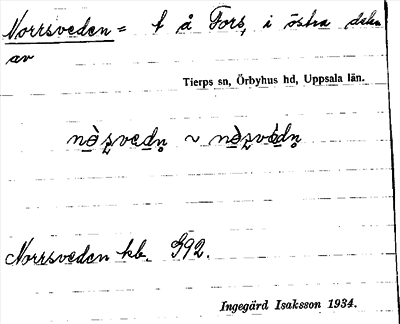 Norrsveden = t å Fors, i östra delen
av
Tierps sn, Örbyhus hd, Uppsala län.
Norrsveden kb. G92.
Ingegärd Isaksson 1934.